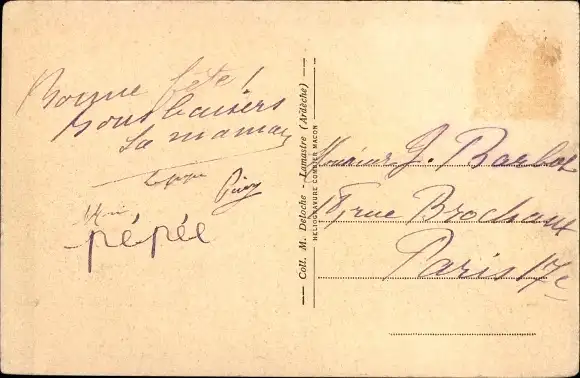 Bonne fête !
bons baisers
ta maman
pépée
Coll. M. Deloche - Lamastre (Ardèche)
HELIOGRAVURE COMBIER MACON
Monsieur J. Barbot
18, rue Brochant
Paris 17e